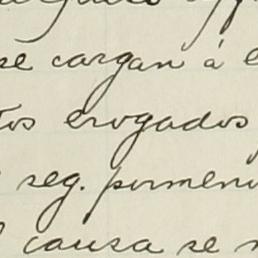 se cargan á
tos erogados
seg. pormeno
causa se